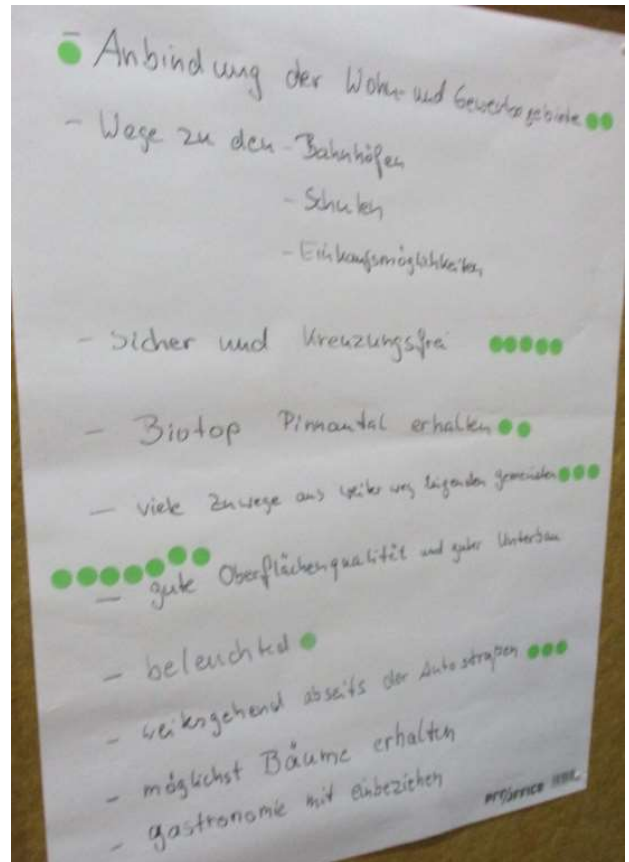 - Anbindung der Wohn- und Gewerbegebiete
- Wege zu den - Bahnhöfen
- Schulen
- Einkaufsmöglichkeiten
- Sicher und Kreuzungsfrei
- Biotop Pinnautal erhalten
- viele Zuwege aus weiter weg liegenden Gemeinden
- gute Oberflächenqualität und guter Unterbau
- beleuchtet
- weitesgehend abseits der Autostraßen
- möglichst Bäume erhalten
- gastronomie mit einbeziehen